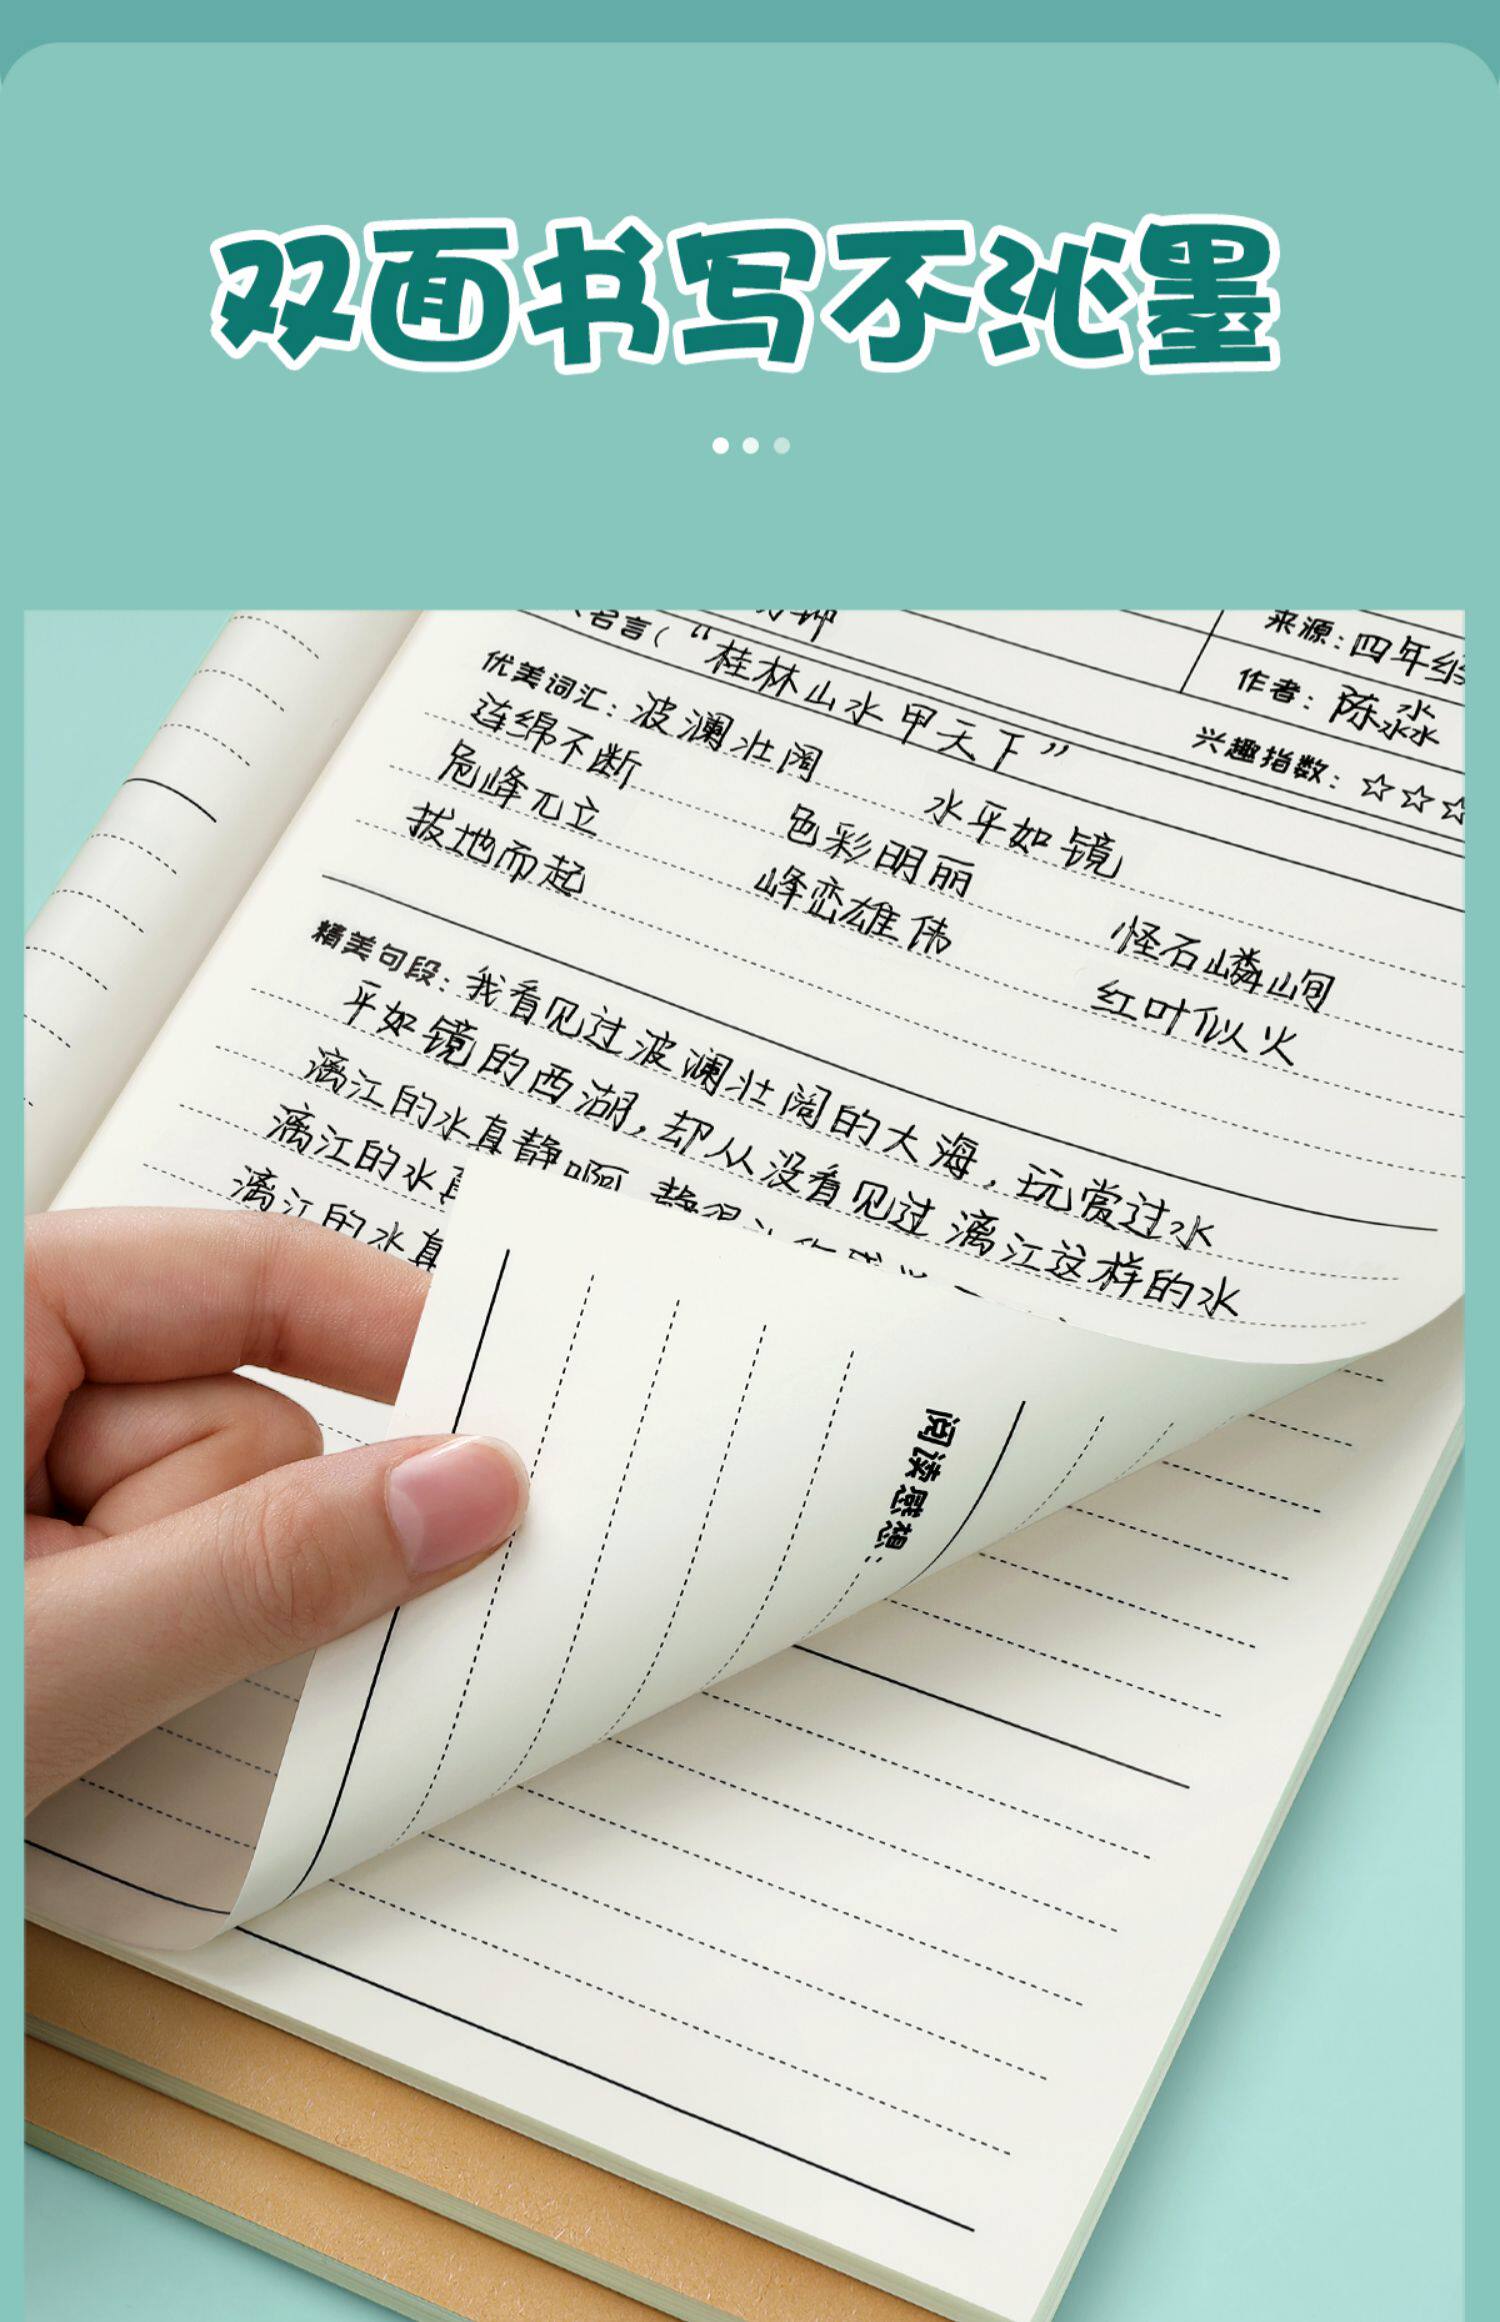 双面书写不沁墨
来源：四年级
名言（“桂林山水甲天下”
作者：陈淼
兴趣指数：☆☆☆
优美词汇：波澜壮阔 水平如镜
连绵不断 色彩明丽 怪石嶙峋
危峰兀立 峰峦雄伟 红叶似火
拔地而起
精美句段：我看见过波澜壮阔的大海，玩赏过水
平如镜的西湖，却从没看见过漓江这样的水
漓江的水真静啊
漓江的水真
漓江的水真
阅读感想：